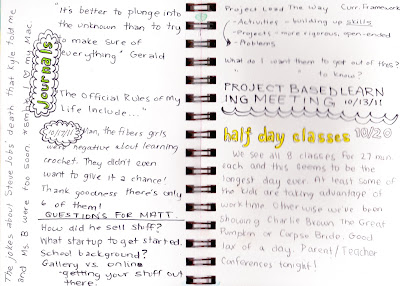 The jokes about Steve Jobs' death that Kyle told me
and Ms. B were too soon. *smirk* I ♡ my Mac.
Journals
"It's better to plunge into
the unknown than to try
to make sure of
everything" Gerald
The Official Rules of My
Life Include..."
10/17/11 Man, the fibers girls
were negative about learning
crochet. They didn't even
want to give it a chance!
Thank goodness there's only
6 of them!
QUESTIONS FOR MATT.
How did he sell stuff?
What startup to get started.
School background?
Gallery vs. online
-getting your stuff out
there?
Project Lead The Way Curr. Framework
-Activities - building up skills
-Projects - more rigorous, open-ended
-Problems
What do I want them to get out of this?
" " to know?
PROJECT BASED LEARN
ING MEETING 10/13/11
half day classes 10/20
We see all 8 classes for 27 min.
each and this seems to be the
longest day ever. At least some of
the kids are taking advantage of
work time. Otherwise we've been
showing Charlie Brown The Great
Pumpkin or Corpse Bride. Good
law of a day. Parent/Teacher
Conferences tonight!